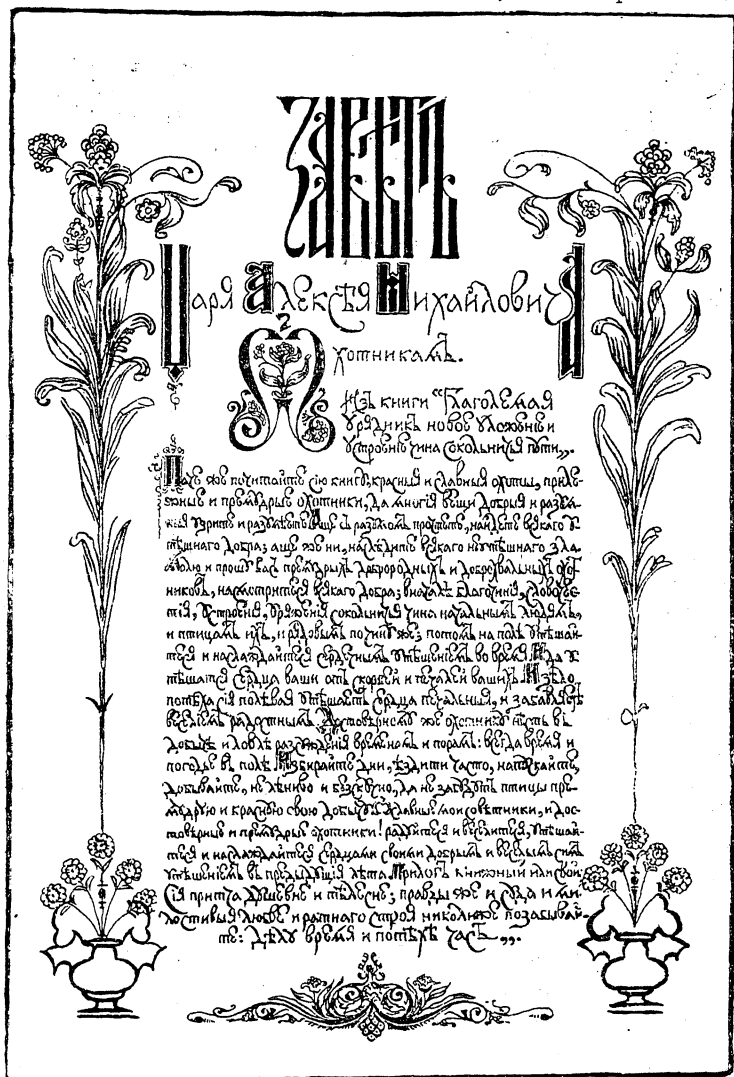 Царя Алексѣя Михайловича
Охотникамъ.
Изъ книги “Глаголемая
Урядникъ новое уложеніе и
устроеніе чина сокольничья пути„.
Паче же почитайте сію книгу, красныя и славныя охоты, приле-
жные и премудрые охотники, да многія вещи добрыя и разум-
ныя узрите и разумѣете. Аще съ разумомъ прочтете, найдете всякаго у-
тѣшнаго добра; аще же ни, наслѣдите всякаго неутѣшнаго зла.
Молю и прошу васъ премудрыхъ доброродныхъ и доброхвальныхъ охот-
никовъ, насмотритеся всякаго добра; вначалѣ благочинія, словочес-
тія, устроенія, уряженія сокольничья чина начальнымъ людямъ,
и птицамъ ихъ, и рядовымъ по чину же; потомъ на полѣ утѣшай-
теся и наслаждайтеся сердечнымъ утѣшеніемъ во время. И да у-
тѣшатся сердца ваши отъ скорбей и печалей вашихъ. И зѣло
потѣха сія полевая утѣшаетъ сердца печальныя, и забавляетъ
веселіемъ радостнымъ. Достовѣрному же охотнику нѣсть въ
добычѣ и ловлѣ разсужденія временомъ и порамъ: всегда время и
погодье въ полѣ. Избирайте дни, ѣздите часто, напускайте,
добывайте, не лѣниво и безскучно, да не забудутъ птицы пре-
мудрую и красную свою добычу. О славные мои совѣтники, и дос-
товѣрные и премудрые охотники! радуйтеся и веселитеся, утѣшай-
теся и наслаждайтеся сердцами своими добрымъ и веселымъ симъ
утѣшеніемъ въ предыдущія лѣта. Прилогъ книжный или свой
Сія притча душевне и тѣлесне; правды же и суда и ми-
лостивыя любве и ратнаго строя николиже позабывай-
те: дѣлу время и потѣхѣ часъ„.